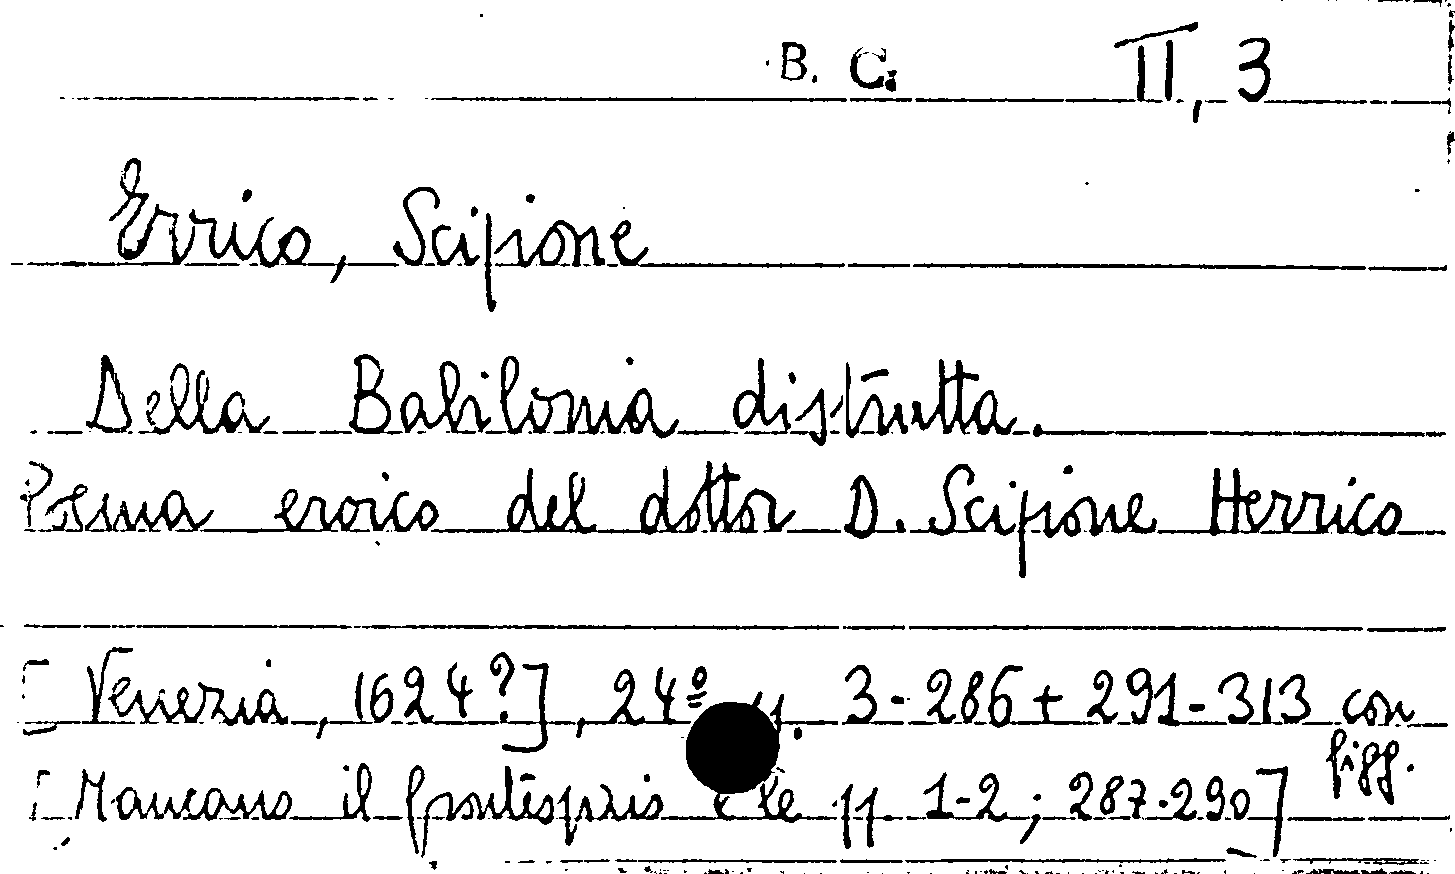 B. C. II, 3
Errico, Scipione
Della Babilonia distrutta.
Poema eroico del dottor D. Scipione Herrico
[Venezia, 1624?], 24º pp. 3-286 + 291-313 con
figg.
[Mancano il frontespizio e le pp. 1-2; 287-290]